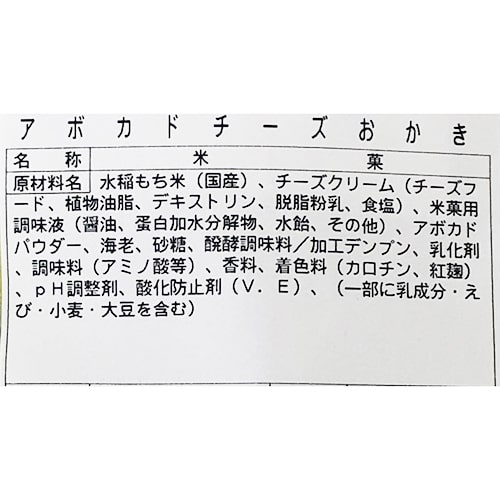 アボカドチーズおかき
名称 米菓
原材料名 水稲もち米（国産）、チーズクリーム（チーズフ
ード、植物油脂、デキストリン、脱脂粉乳、食塩）、米菓用
調味液（醤油、蛋白加水分解物、水飴、その他）、アボカド
パウダー、海老、砂糖、醗酵調味料／加工デンプン、乳化剤
、調味料（アミノ酸等）、香料、着色料（カロチン、紅麹）
、ｐＨ調整剤、酸化防止剤（Ｖ．Ｅ）、（一部に乳成分・え
び・小麦・大豆を含む）